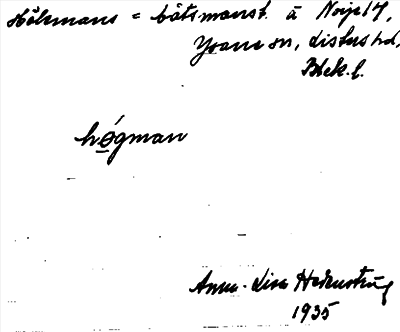 Hökmans = båtsmanst. å Noije 17,
Ysane sn, Listers hd,
Blek. l.
hǿ̱gman
Anna-Lisa Hedenström
1935